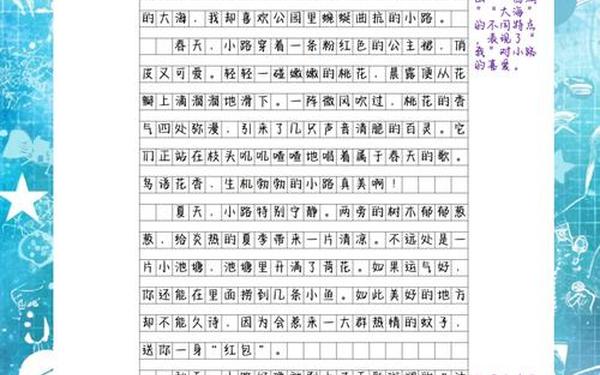 的大海，我却喜欢公园里蜿蜒曲抗的小路。
春天，小路穿着一条粉红色的公主裙，俏
皮又可爱。轻轻一碰嫩嫩的桃花，晨露便从花
瓣上滴溜溜地滑下。一阵微风吹过，桃花的香
气四处弥漫，引来了几只声音清脆的百灵。它
们正站在枝头叽叽喳喳地唱着属于春天的歌。
鸟语花香，生机勃勃的小路真美啊！
夏天，小路特别宁静。两旁的树木郁郁葱
葱，给炎热的夏季带来一片清凉。不远处是一
片小池塘，池塘里开满了荷花。如果运气好，
你还能在里面捞到几条小鱼。如此美好的地方
却不能久待，因为会惹来一大群热情的蚊子，
送你一身“红包”。
”“大海”
的不同特点
，表现了“
我”对小路
的喜爱。